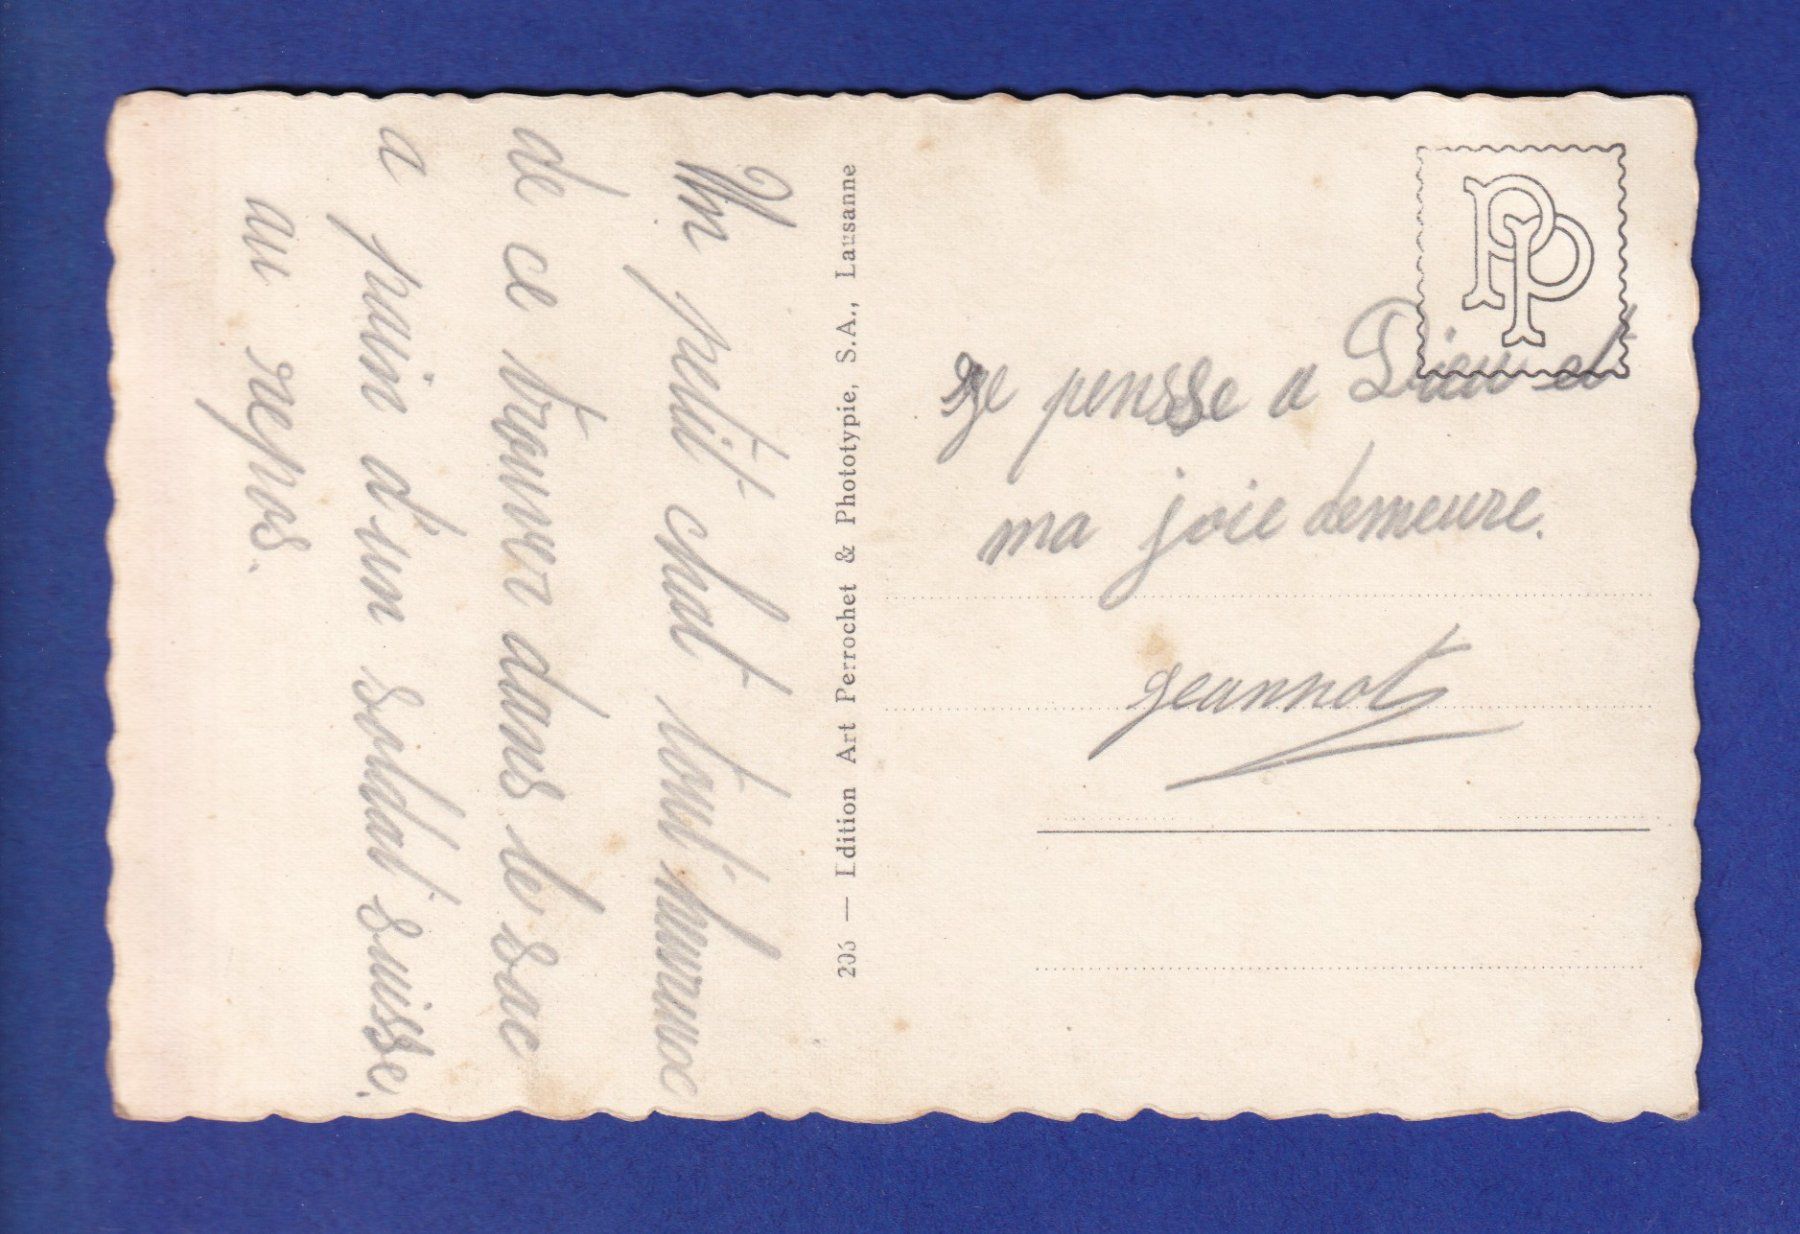 Un petit chat tout heureux
de ce trouver dans le sac
a pain d'un soldat suisse.
au repos.
206 — Edition Art Perrochet & Phototypie, S.A., Lausanne
PP
ge pensse a Dieu et
ma joie demeure.
geannot